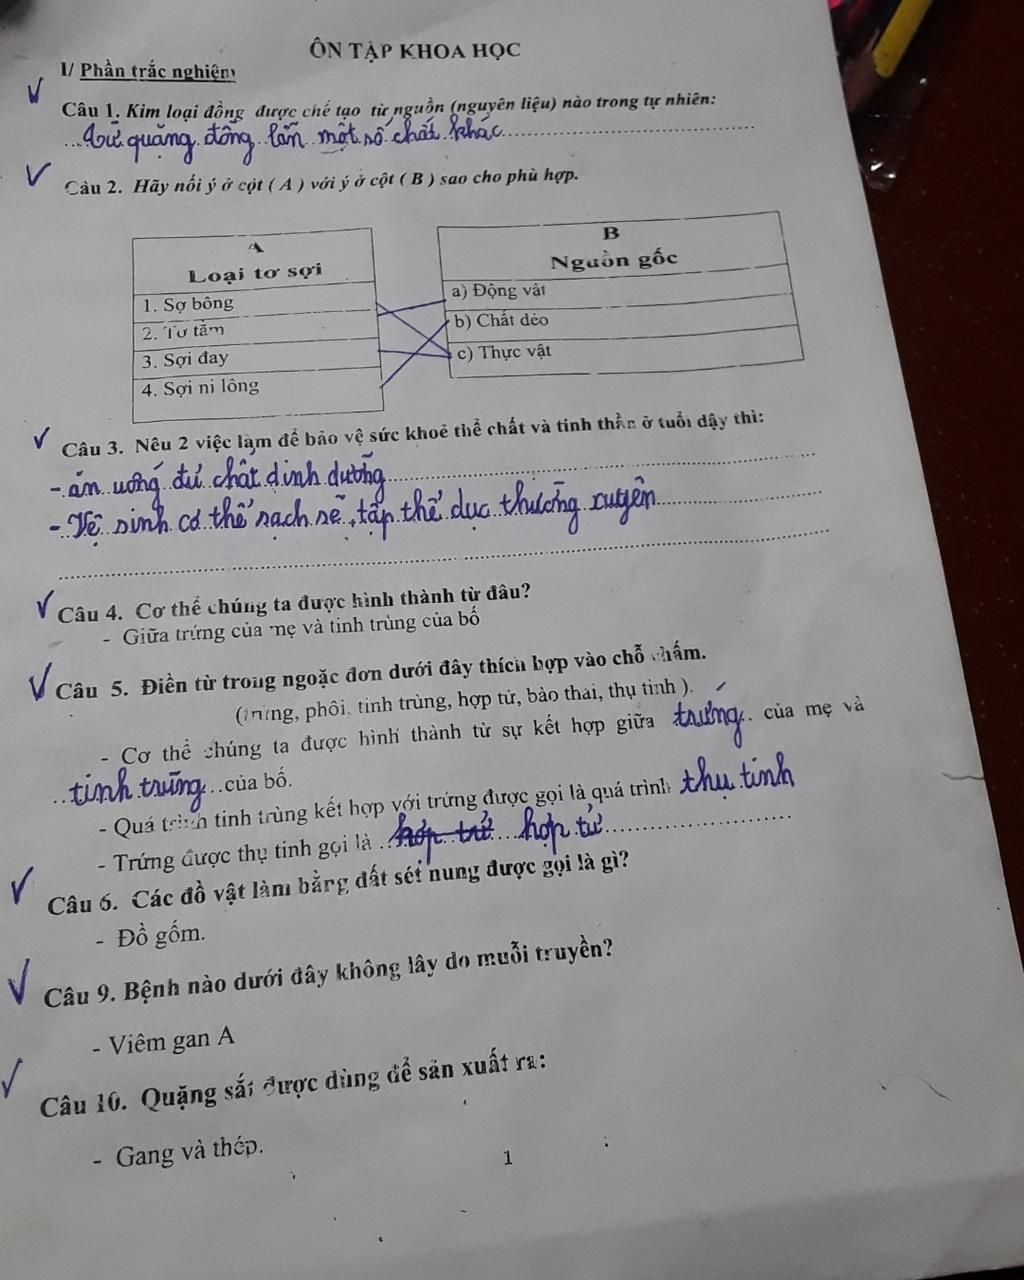 ÔN TẬP KHOA HỌC
I/ Phần trắc nghiệm
Câu 1. Kim loại đồng được chế tạo từ nguồn (nguyên liệu) nào trong tự nhiên:
...từ quặng đồng lẫn một số chất khác...
Câu 2. Hãy nối ý ở cột ( A ) với ý ở cột ( B ) sao cho phù hợp.
A
Loại tơ sợi
1. Sợ bông
2. Tơ tằm
3. Sợi đay
4. Sợi ni lông
B
Nguồn gốc
a) Động vật
b) Chất dẻo
c) Thực vật
Câu 3. Nêu 2 việc làm để bảo vệ sức khoẻ thể chất và tinh thần ở tuổi dậy thì:
- ăn uống đủ chất dinh dưỡng
- Vệ sinh cơ thể sạch sẽ, tập thể dục thường xuyên
Câu 4. Cơ thể chúng ta được hình thành từ đâu?
- Giữa trứng của mẹ và tinh trùng của bố
Câu 5. Điền từ trong ngoặc đơn dưới đây thích hợp vào chỗ chấm.
(trứng, phôi, tinh trùng, hợp tử, bào thai, thụ tinh ).
- Cơ thể chúng ta được hình thành từ sự kết hợp giữa trứng.. của mẹ và
..tinh trùng...của bố.
- Quá trình tinh trùng kết hợp với trứng được gọi là quá trình thụ tinh
- Trứng được thụ tinh gọi là .. hợp tử
Câu 6. Các đồ vật làm bằng đất sét nung được gọi là gì?
- Đồ gốm.
Câu 9. Bệnh nào dưới đây không lây do muỗi truyền?
- Viêm gan A
Câu 10. Quặng sắt được dùng để sản xuất ra:
- Gang và thép.
1